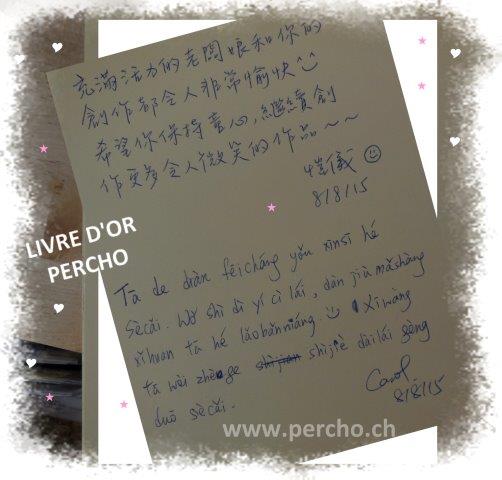 充滿活力的老闆娘和你的
創作都令人非常愉快
希望你保持童心,繼續創
作更多令人微笑的作品~~
愷儀
8/8/15
LIVRE D'OR
PERCHO
Tā de diàn fēicháng yǒu xīnsī hé
sècǎi. Wǒ shì dì yí cì lái, dàn jiù mǎshàng
xǐhuan tā hé lǎobǎnniáng Xīwàng
tā wèi zhěnge shìjiè dàilái gèng
duō sècǎi.
Carol
8/8/15
www.percho.ch